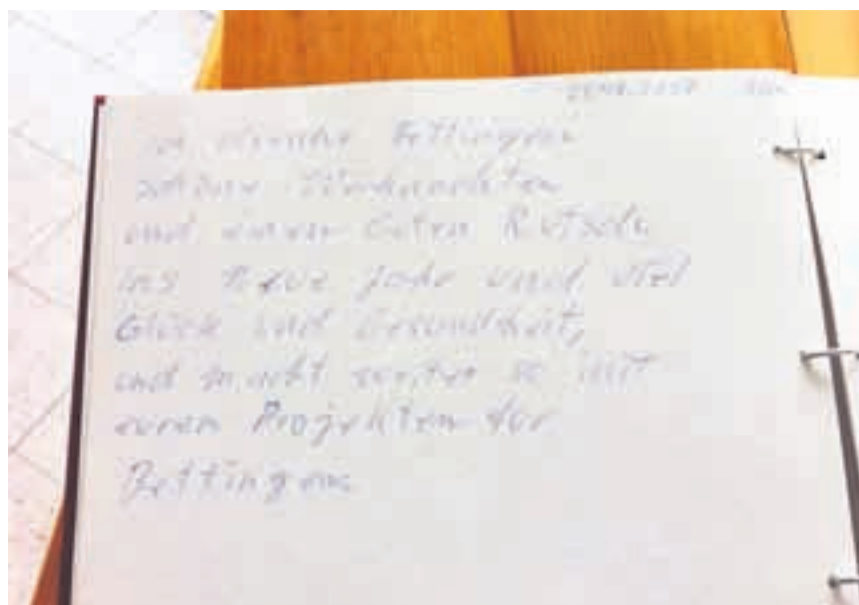 Bettingen
schöne Weihnachten
und einen Guten Rutsch
ins Neue Jahr und viel
Glück und Gesundheit,
und macht weiter so mit
euren Projekten für
Bettingen